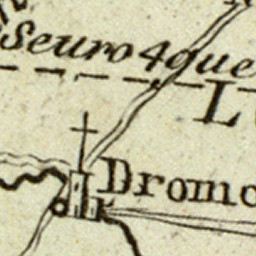 Seuro4que
L
Dromo